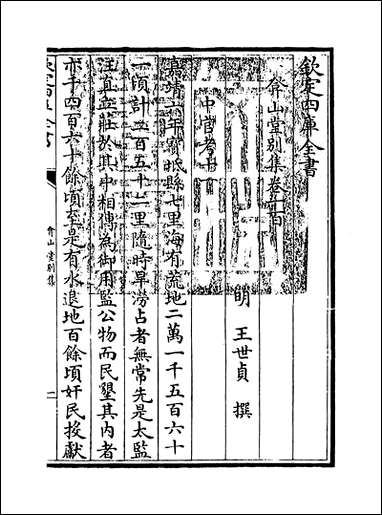 欽定四庫全書
弇山堂別集卷一百
明 王世貞 撰
中官考十一
嘉靖六年寶坻縣七里海有荒地二萬一千五百六十
一頃計二百五十二里隨時旱澇占者無常先是太監
汪直立莊於其中相傳為御用監公物而民墾其内者
亦千四百六十餘頃至是有水退地百餘頃奸民投獻
欽定四庫全書
弇山堂別集